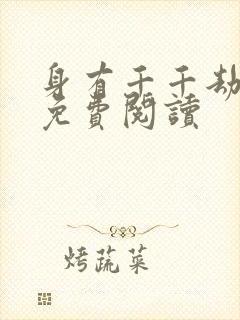 身有千千劫
免費閱讀
烤蔬菜